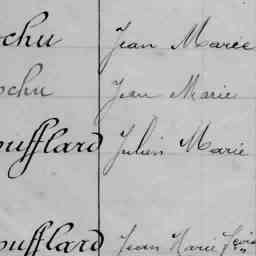 ochu Jean Marie
ochu Jean Marie
oufflard Julien Marie
oufflard Jean Marie